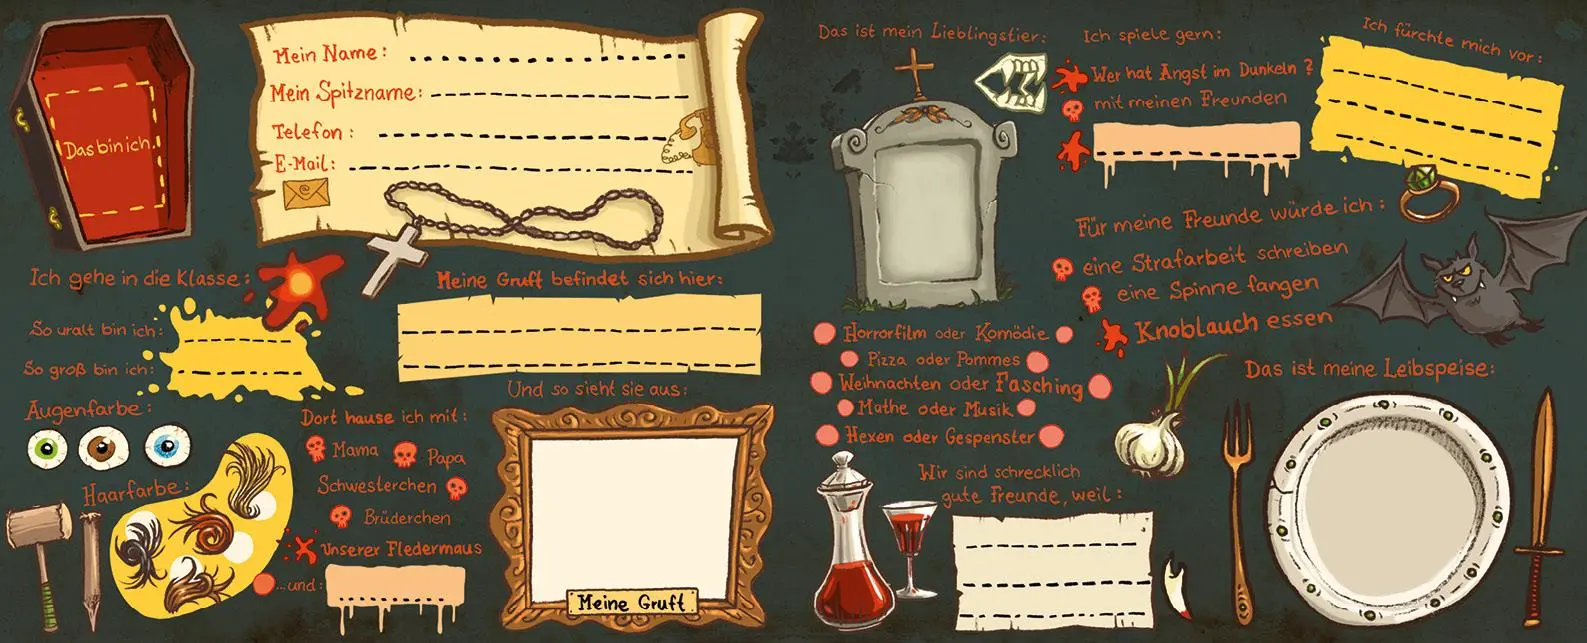 Das bin ich.
Mein Name:
Mein Spitzname:
Telefon:
E-Mail:
Ich gehe in die Klasse:
So uralt bin ich:
So groß bin ich:
Augenfarbe:
Haarfarbe:
Meine Gruft befindet sich hier:
Und so sieht sie aus:
Dort hause ich mit:
Mama
Papa
Schwesterchen
Brüderchen
Unserer Fledermaus
...und:
Meine Gruft
Das ist mein Lieblingstier:
Ich spiele gern:
Wer hat Angst im Dunkeln?
mit meinen Freunden
Ich fürchte mich vor:
Für meine Freunde würde ich:
eine Strafarbeit schreiben
eine Spinne fangen
Knoblauch essen
Horrorfilm oder Komödie
Pizza oder Pommes
Weihnachten oder Fasching
Mathe oder Musik
Hexen oder Gespenster
Wir sind schrecklich
gute Freunde, weil:
Das ist meine Leibspeise: